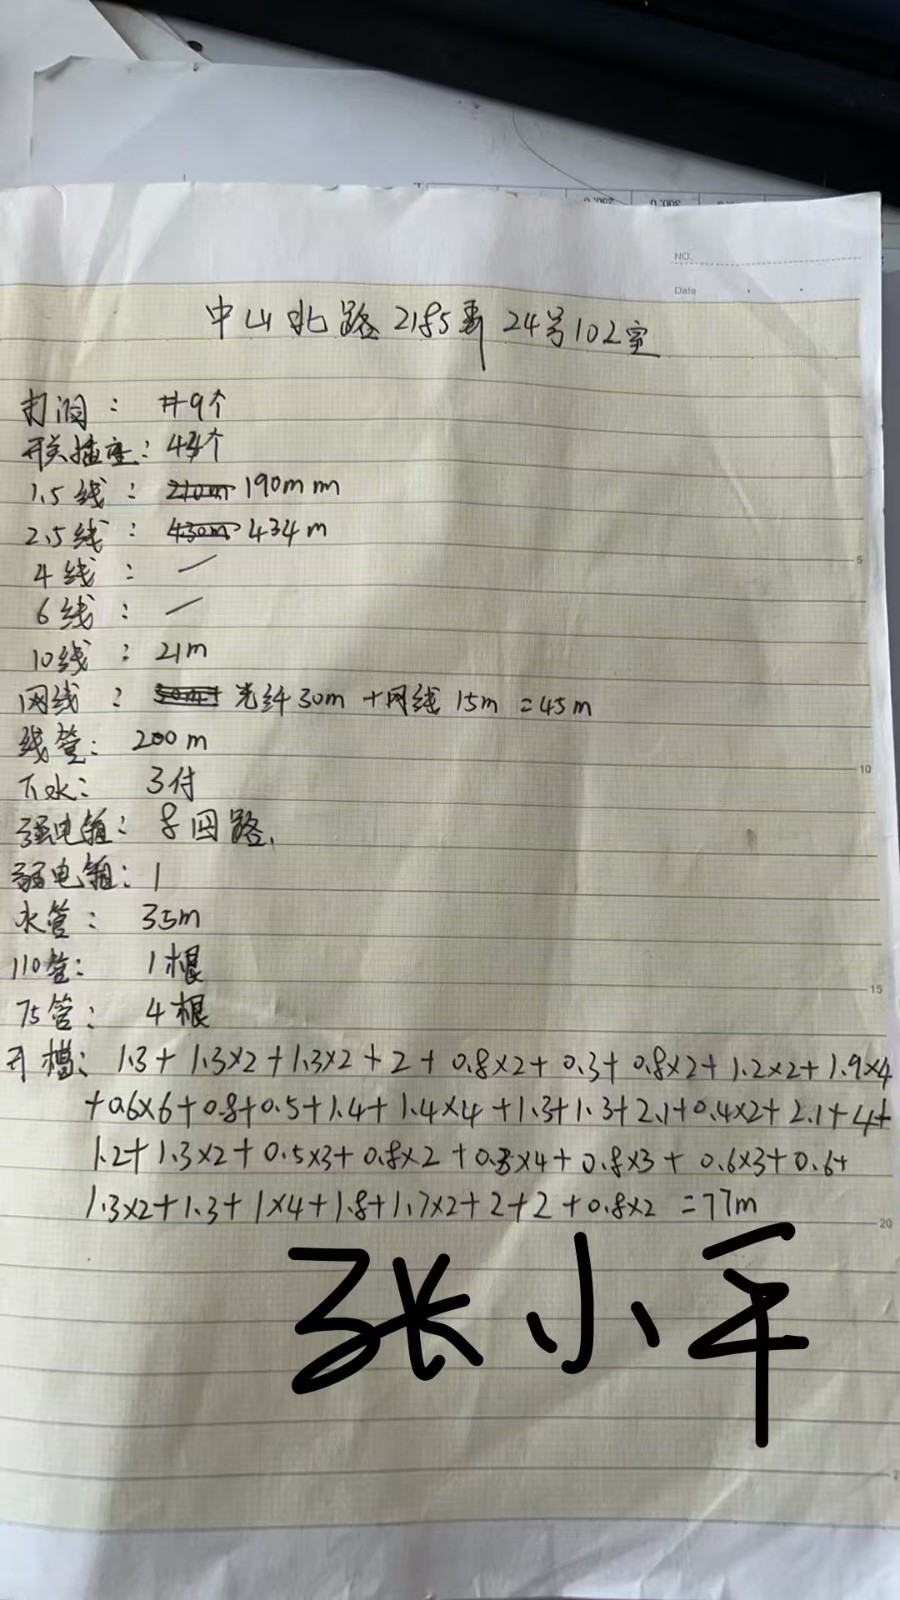 NO.
Date
中山北路2185弄24号102室
打洞： 共9个
开关插座：44个
1.5线： 210m 190m m
2.5线： 430m 434m
4线： ／
6线： ／
10线： 21m
网线： 光纤30m+网线15m=45m
线管： 200m
下水： 3付
强电箱： 8回路.
弱电箱：1
水管： 35m
110管： 1根
75管： 4根
开槽：1.3+1.3×2+1.3×2+2+0.8×2+0.3+0.8×2+1.2×2+1.9×4
+0.6×6+0.8+0.5+1.4+1.4×4+1.3+1.3+2.1+0.4×2+2.1+4+
1.2+1.3×2+0.5×3+0.8×2+0.3×4+0.8×3+0.6×3+0.6+
1.3×2+1.3+1×4+1.8+1.7×2+2+2+0.8×2=77m
张小平
5
10
15
20